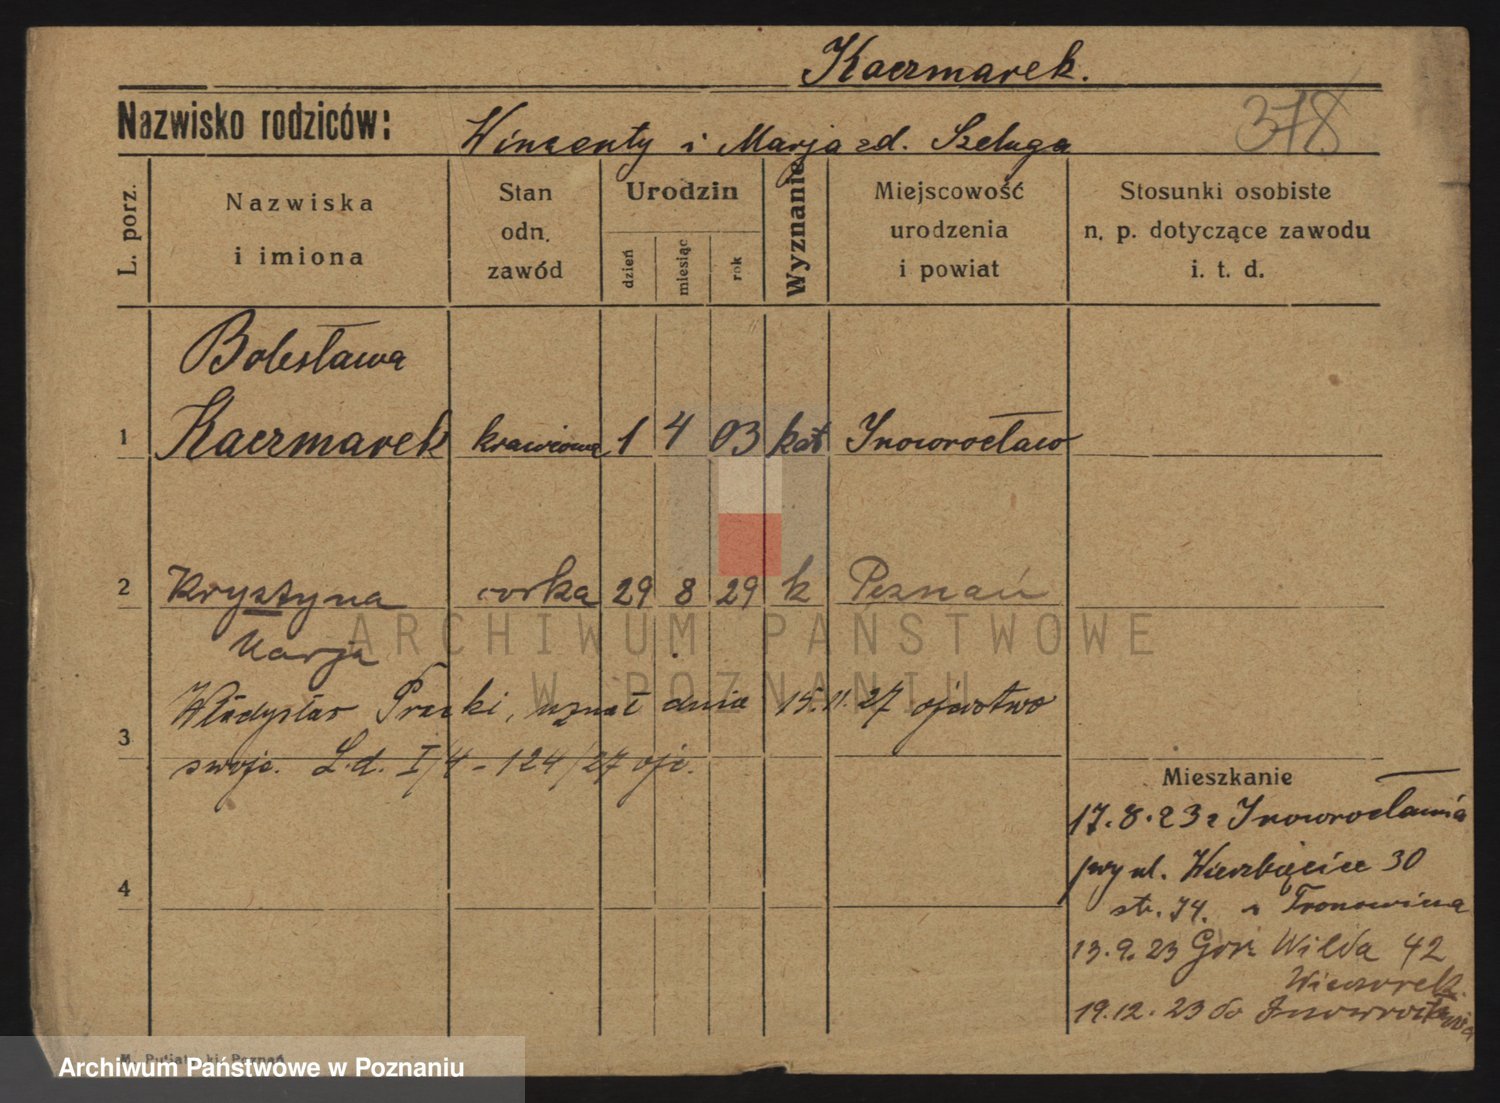 Kaczmarek.
Nazwisko rodziców:
Wincenty i Marja zd. Szeluga
378
L. porz.
Nazwiska
i imiona
Stan
odn.
zawód
Urodzin
dzień
miesiąc
rok
Wyznanie
Miejscowość
urodzenia
i powiat
Stosunki osobiste
n. p. dotyczące zawodu
i. t. d.
Bolesława
1 Kaczmarek krawcowa 1 4 03 kat Inowrocław
2 Krystyna corka 29 8 29 k Poznań
Marja
Władysław uznał dnia 15.11.27 ojcostwo
3
swoje. L.d. I/4-124/27 ojc.
Mieszkanie
17.8.23 z Inowrocławia
przy ul. Wierzbięcice 30
4
str. 74. u
13.9.23 Gór Wilda 42
Wieczorek
19.12.23 do Inowrocławia
ARCHIWUM PAŃSTWOWE
W POZNANIU
Poznań
Archiwum Państwowe w Poznaniu